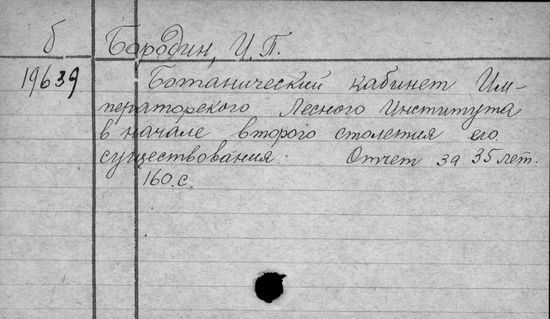 б Бородин, И.П.
19639 Ботанический кабинет Им-
ператорского Лесного Института
в начале второго столетия его
существования Отчет за 35 лет.
160.с.